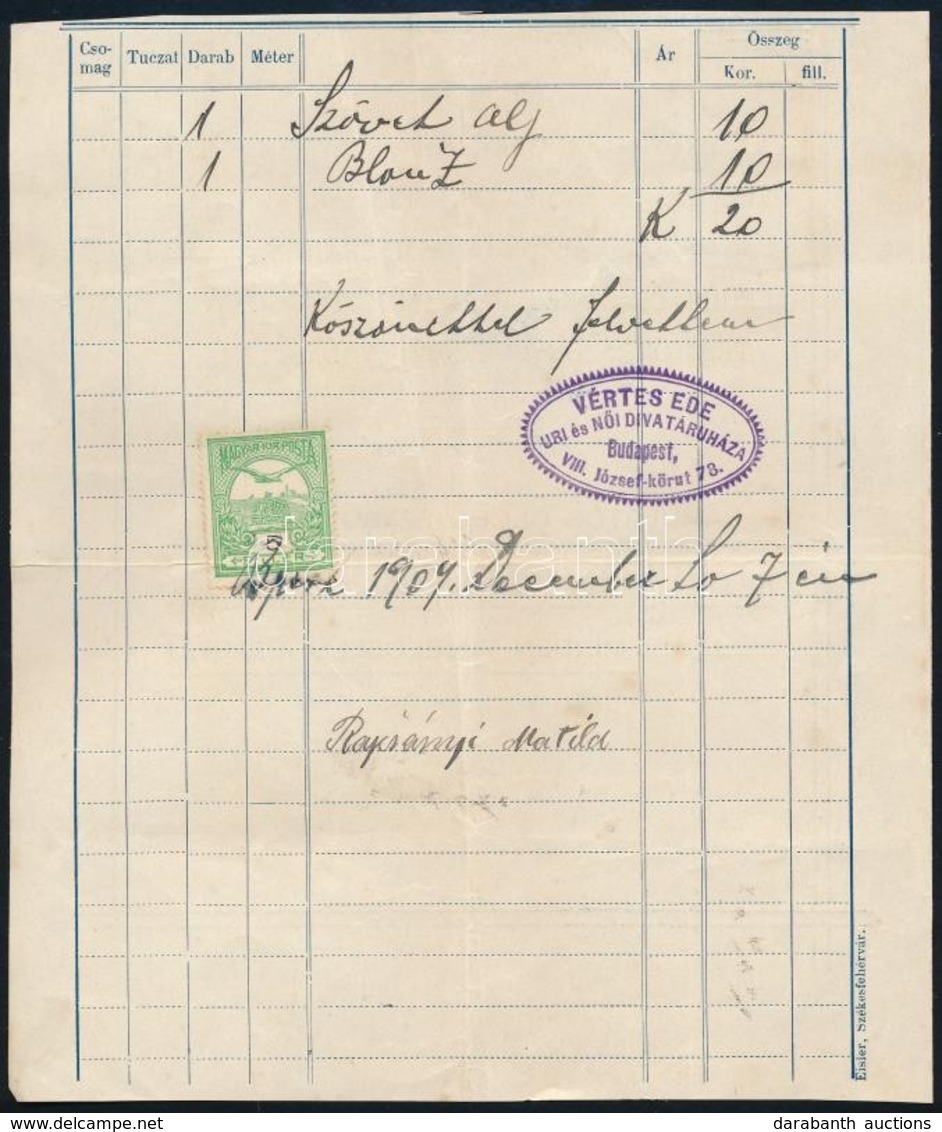 Cso-mag Tuczat Darab Méter Ár Összeg
Kor. fill.
1 Szövet alj 10
1 Blouz 10
K 20
Köszönettel felvettem
VÉRTES EDE
URI és NŐI DIVATÁRUHÁZA
Budapest,
VIII. József-körut 78.
MAGYAR KIR. POSTA
1907. December hó 7 én
Matild
Eisler, Székesfehérvár.
darabanth
darabanth auctions